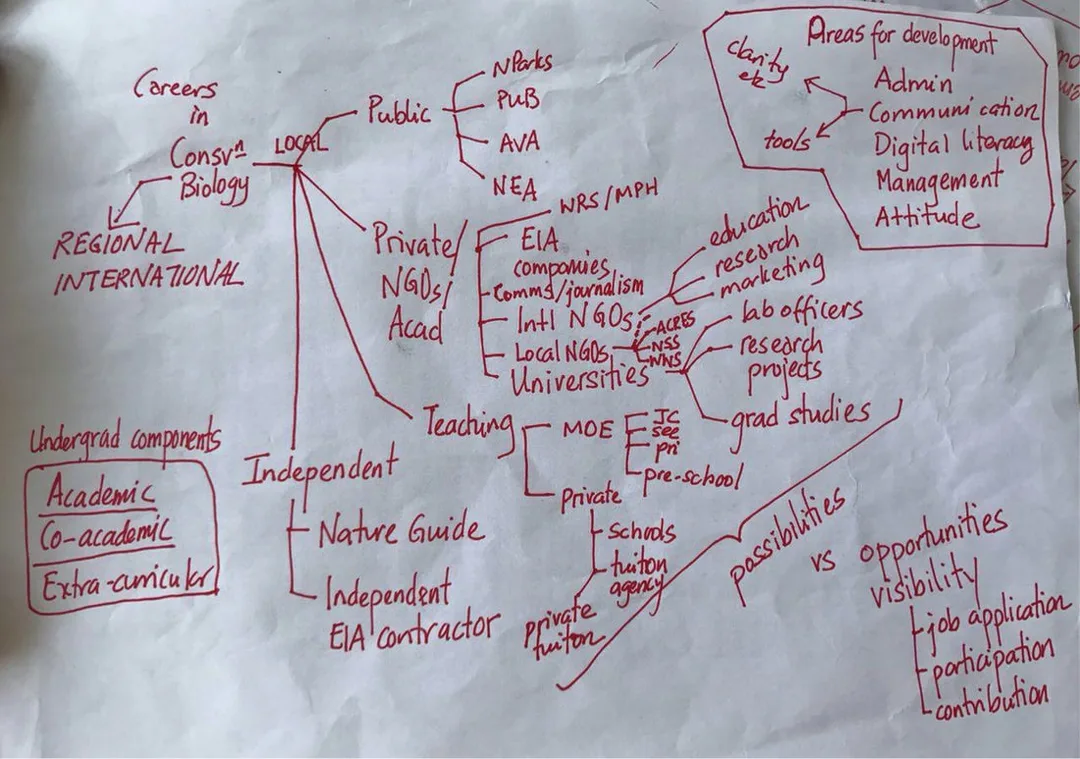 Careers
in
Consvⁿ
Biology
REGIONAL
INTERNATIONAL
LOCAL
Public
NParks
PUB
AVA
NEA
Private/
NGOs/
Acad
WRS/MPH
EIA
companies
Comms/journalism
Intl NGOs
education
research
marketing
Local NGOs
ACRES
NSS
WNS
Universities
lab officers
research
projects
grad studies
Teaching
MOE
JC
sec
pri
pre-school
private
schools
tuiton
agency
private
tuiton
Independent
Nature Guide
Independent
EIA contractor
possibilities
vs
opportunities
visibility
job application
participation
contribution
Areas for development
Admin
Communication
clarity
etc
tools
Digital literacy
Management
Attitude
Undergrad components
Academic
Co-academic
Extra-curricular